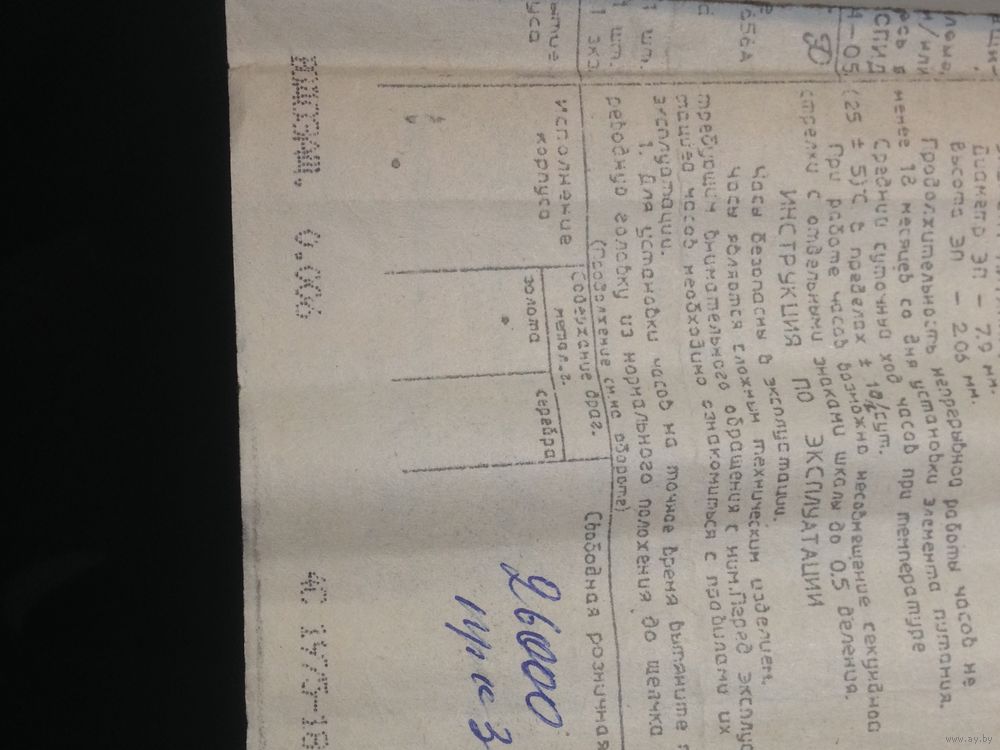 ации-
Диаметр ЭП — 7.9 мм.
Высота ЭП — 2.06 мм.
Продолжительность непрерывной работы часов не
менее 18 месяцев со дня установки элемента питания.
Средний суточный ход часов при температуре
(25 ± 5)°С в пределах ± 1 с/сут.
При работе часов возможно несовмещение секундной
стрелки с отдельными знаками шкалы до 0.5 деления.
ИНСТРУКЦИЯ ПО ЭКСПЛУАТАЦИИ
Часы безопасны в эксплустации.
Часы являются сложным техническим изделием,
требующим внимательного обращения с ним.Перед эксплуа
тацией часов необходимо ознакомиться с правилами их
эксплуатации.
1. Для установки часов на точное время вытяните
реводную головку из нормального положения до щелчка
(Продолжение см.на обороте)
1 шт.
1 шт.
1 экз.
Исполнение корпуса
Содержание драг.
метал.-г.
золота
серебра
Свободная розничная
26000
0.006
www.ay.by